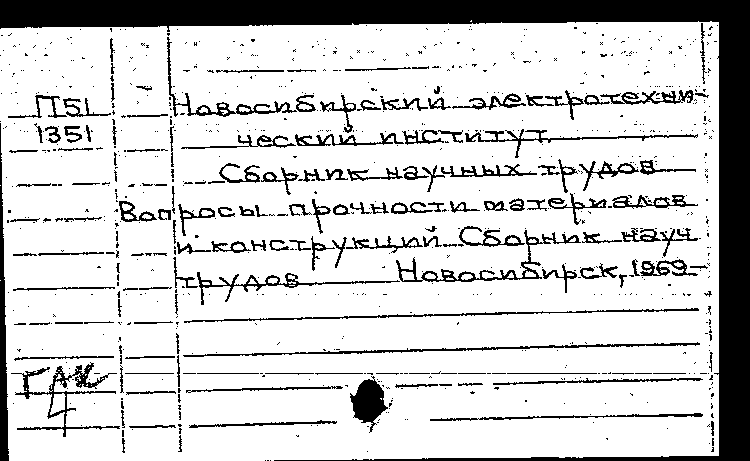 П51 Новосибирский электротехни-
1351 ческий институт.
Сборник научных трудов
Вопросы прочности материалов
и конструкций Сборник науч
трудов Новосибирск, 1969-
4